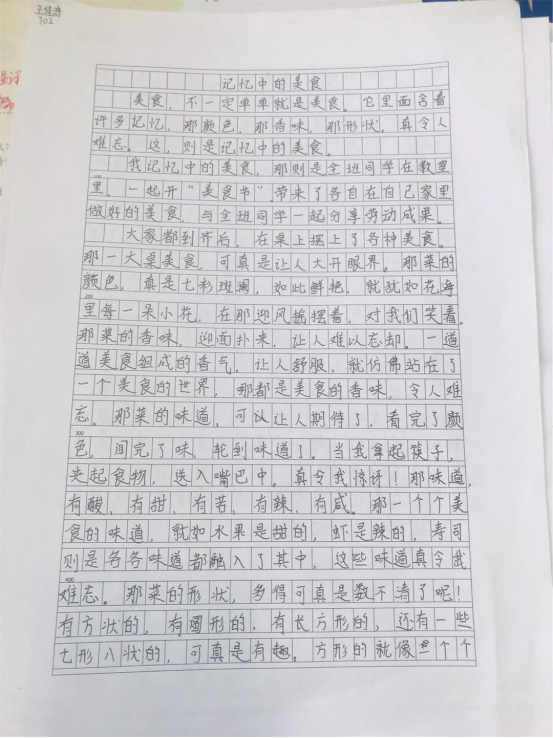 702
记忆中的美食
美食，不一定单单就是美食。它里面含着
许多记忆，那颜色，那香味，那形状，真令人
难忘。这，则是记忆中的美食。
我记忆中的美食，那则是全班同学在教室
里，一起开“美食节”，带来了各自在自己家里
做好的美食，与全班同学一起分享劳动成果。
大家都到齐后，在桌上摆上了各种美食。
那一大桌美食，可真是让人大开眼界。那菜的
颜色，真是七彩斑斓，如此鲜艳，就犹如花海
里每一朵小花，在那迎风摇摆着，对我们笑着。
那菜的香味，迎面扑来，让人难以忘却。一道
道美食组成的香气，让人舒服，就仿佛站在了
一个美食的世界，哪都是美食的香味，令人难
忘。那菜的味道，可以让人期待了，看完了颜
300
色，闻完了味，轮到味道了。当我拿起筷子，
夹起食物，送入嘴巴中。真令我惊讶！那味道，
有酸、有甜、有苦、有辣、有咸。那一个个美
食的味道，就如水果是甜的，虾是辣的，寿司
则是各各味道都融入了其中，这些味道真令我
400
难忘。那菜的形状，多得可真是数不清了呢！
有方状的，有圆形的，有长方形的，还有一些
七形八状的，可真是有趣。方形的就像一个个